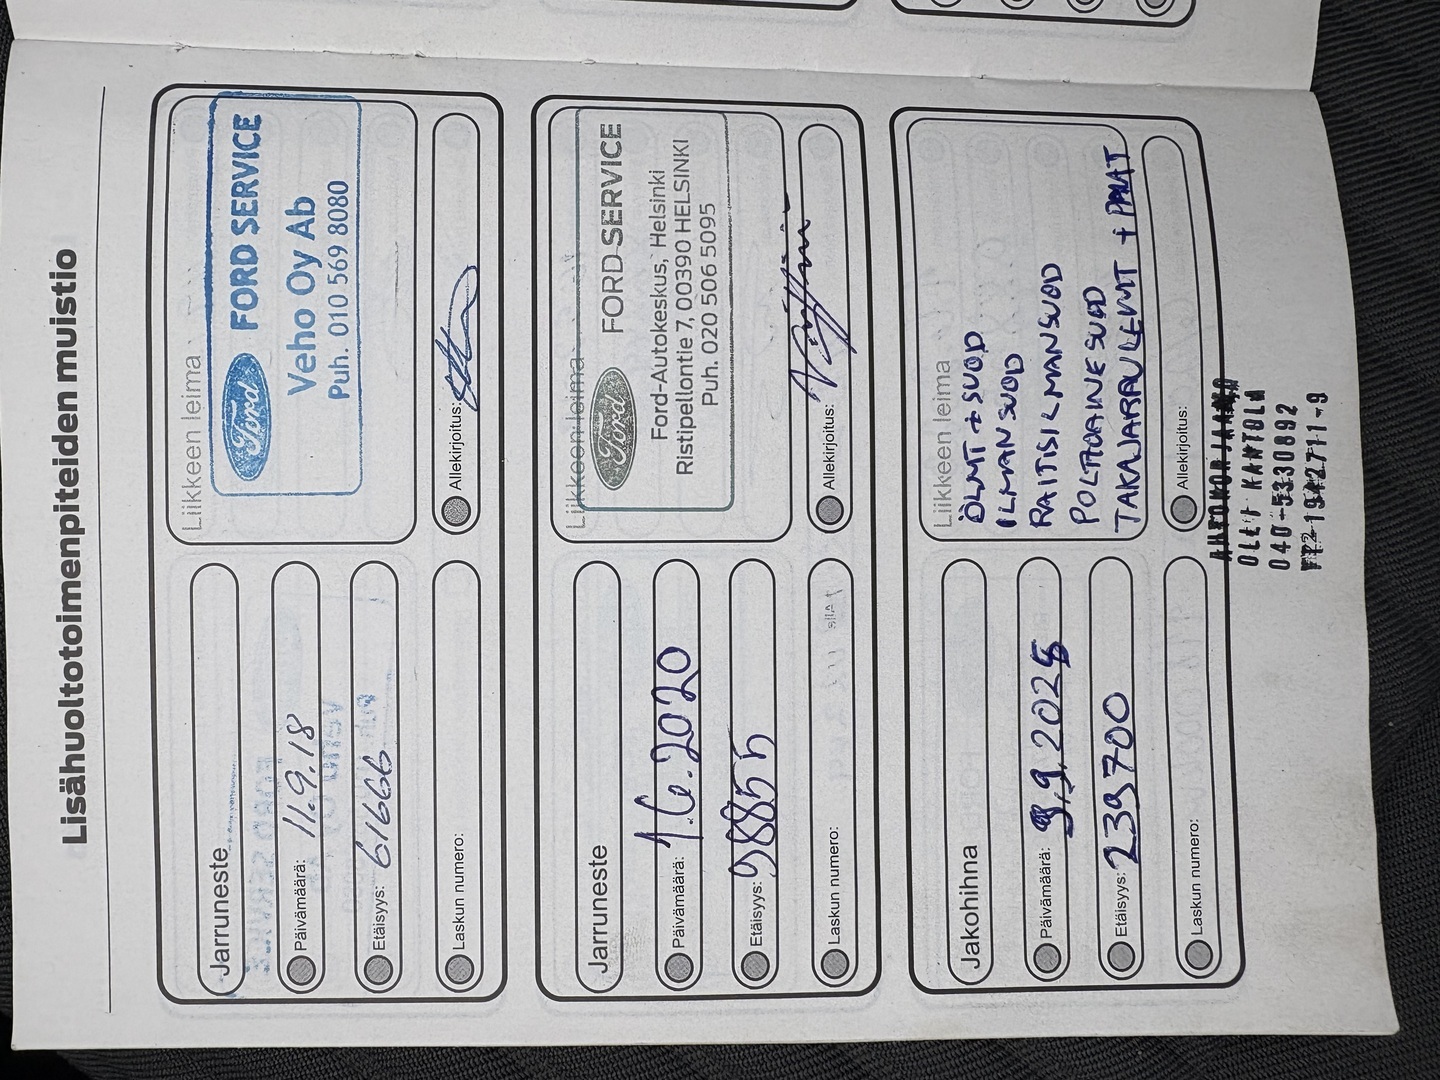 Lisähuoltotoimenpiteiden muistio
Jarruneste
Päivämäärä: 11.9.18
Etäisyys: 61666
Laskun numero:
Liikkeen leima
Ford FORD SERVICE
Veho Oy Ab
Puh. 010 569 8080
Allekirjoitus:
Jarruneste
Päivämäärä: 1.6.2020
Etäisyys: 98855
Laskun numero:
Liikkeen leima
Ford FORD SERVICE
Ford-Autokeskus, Helsinki
Ristipellontie 7, 00390 HELSINKI
Puh. 020 506 5095
Allekirjoitus:
Jakohihna
Päivämäärä: 9.9.2025
Etäisyys: 239700
Laskun numero:
Liikkeen leima
ÖLMT + SUOD
ILMANSUOD
RAITISILMANSUOD
POLTTOAINESUOD
TAKAJARRULEVYT + PALAT
Allekirjoitus:
AUTOKORJAAMO
OLLI KANTOLA
040-5330892